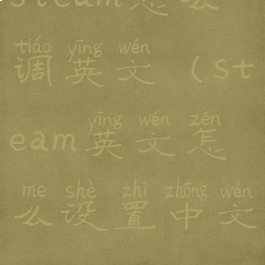 steam怎么
tiáo yīng wén
调英文(St
yīng wén zěn
eam英文怎
me shè zhì zhōng wén
么设置中文